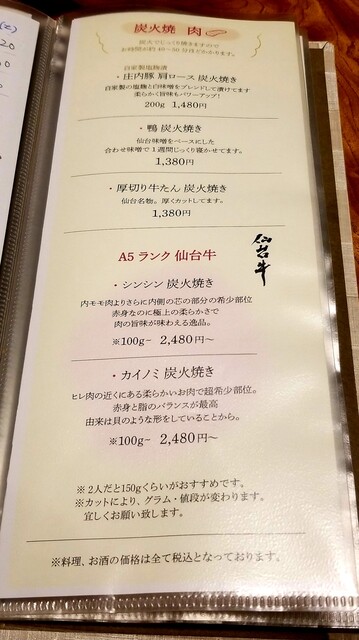 炭火焼 肉
炭火でじっくり焼きますので
お時間が約40～50分ほどかかります。
自家製塩麹漬
・庄内豚 肩ロース 炭火焼き
自家製の塩麹と白味噌をブレンドして漬けてます
柔らかく旨味もパワーアップ！
200g 1,480円
・鴨 炭火焼き
仙台味噌をベースにした
合わせ味噌で1週間じっくり寝かせてます。
1,380円
・厚切り牛たん 炭火焼き
仙台名物。厚くカットしてます。
1,380円
仙台牛
A5 ランク 仙台牛
・シンシン 炭火焼き
内モモ肉よりさらに内側の芯の部分の希少部位
赤身なのに極上の柔らかさで
肉の旨味が味わえる逸品。
※100g~ 2,480円～
・カイノミ 炭火焼き
ヒレ肉の近くにある柔らかいお肉で超希少部位。
赤身と脂のバランスが最高
由来は貝のような形をしていることから。
※100g~ 2,480円～
※２人だと150gくらいがおすすめです。
※カットにより、グラム・値段が変わります。
宜しくお願い致します。
※料理、お酒の価格は全て税込となっております。